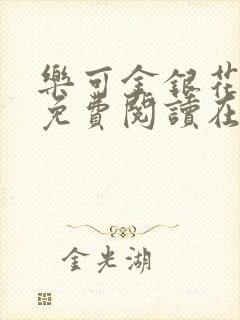 樂可金銀花
免費閱讀在
金光湖